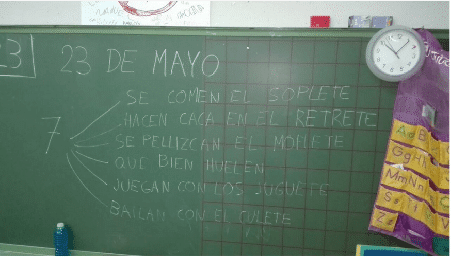 23
23 DE MAYO
7
SE COMEN EL SOPLETE
HACEN CACA EN EL RETRETE
SE PELLIZCAN EL MOFLETE
QUE BIEN HUELEN
JUEGAN CON LOS JUGUETE
BAILAN CON EL CULETE
Aa B
Gg H
Mm Nn
Z